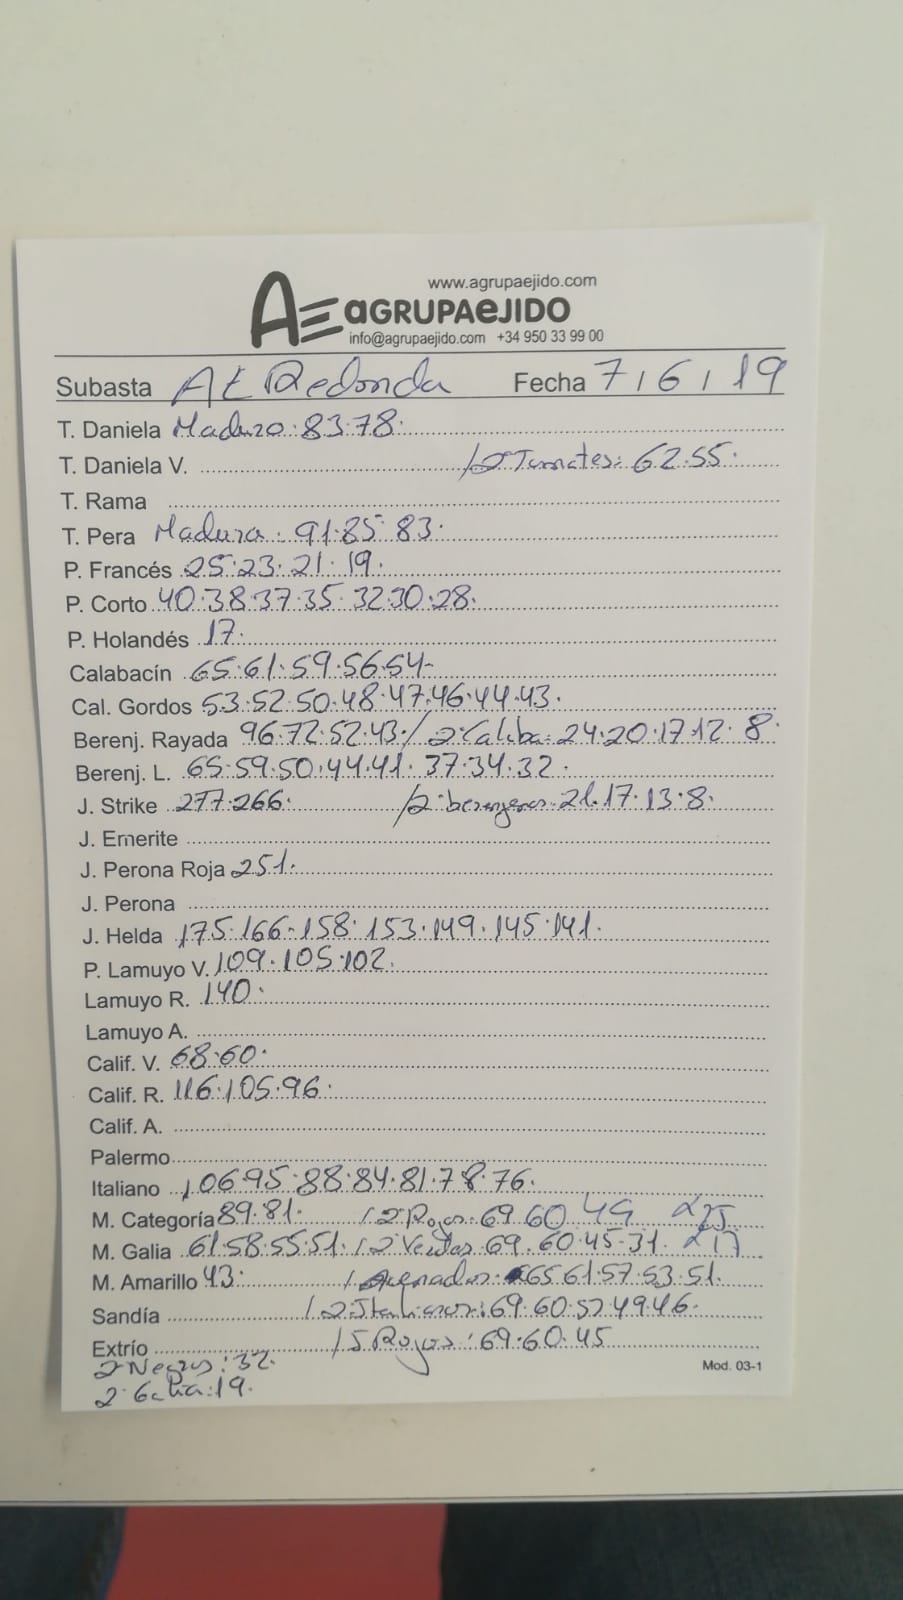 www.agrupaejido.com
AE aGRUPAeJIDO
info@agrupaejido.com +34 950 33 99 00
Subasta AE Redonda Fecha 7/6/19
T. Daniela Maduro: 83.78.
T. Daniela V. /2ºTomates: 62.55.
T. Rama
T. Pera Madura: 91.85.83.
P. Francés 25.23.21.19.
P. Corto 40.38.37.35.32.30.28.
P. Holandés 17.
Calabacín 65.61.59.56.54-
Cal. Gordos 53.52.50.48.47.46.44.43.
Berenj. Rayada 96.72.52.43./2ºCaliba: 24.20.17.12.8.
Berenj. L. 65.59.50.44.41.37.34.32.
J. Strike 277.266. /2ºberenjenas: 21.17.13.8.
J. Emerite
J. Perona Roja 251.
J. Perona
J. Helda 175.166-158.153.149.145.141.
P. Lamuyo V. 109.105.102.
Lamuyo R. 140.
Lamuyo A.
Calif. V. 68.60.
Calif. R. 116.105.96.
Calif. A.
Palermo
Italiano 106.95.88.84.81.78.76.
M. Categoría 89.81. /2ºRojos: 69.60 49
M. Galia 61.58.55.51. /2 Verdes: 69.60.45-31.
M. Amarillo 43. /Asegnados: 65.61.57.53.51.
Sandía /2ºItalianos: 69.60.52.49.46.
Extrío /5 Rojos: 69.60.45
2ºNegros: 32.
2ºGalia: 19.
Mod. 03-1